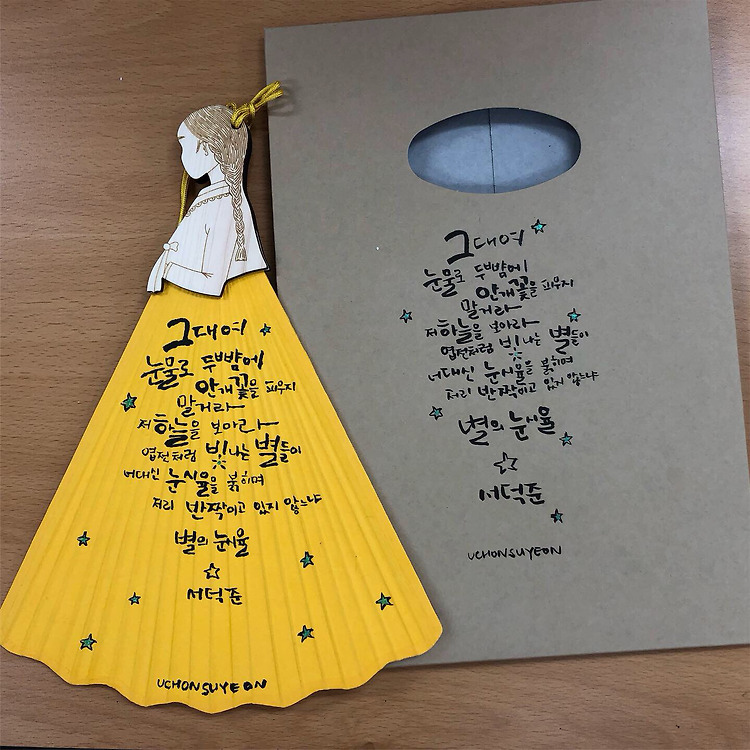 그대여
눈물로 두뺨에
안개꽃을 피우지
말거라
저 하늘을 보아라
엽전처럼 빛나는 별들이
너대신 눈시울을 붉히며
저리 반짝이고 있지 않느냐
별의 눈시울
서덕준
UCHONSUYEON
그대여
눈물로 두뺨에
안개꽃을 피우지
말거라
저 하늘을 보아라
엽전처럼 빛나는 별들이
너대신 눈시울을 붉히며
저리 반짝이고 있지 않느냐
별의 눈시울
서덕준
UCHONSUYEON